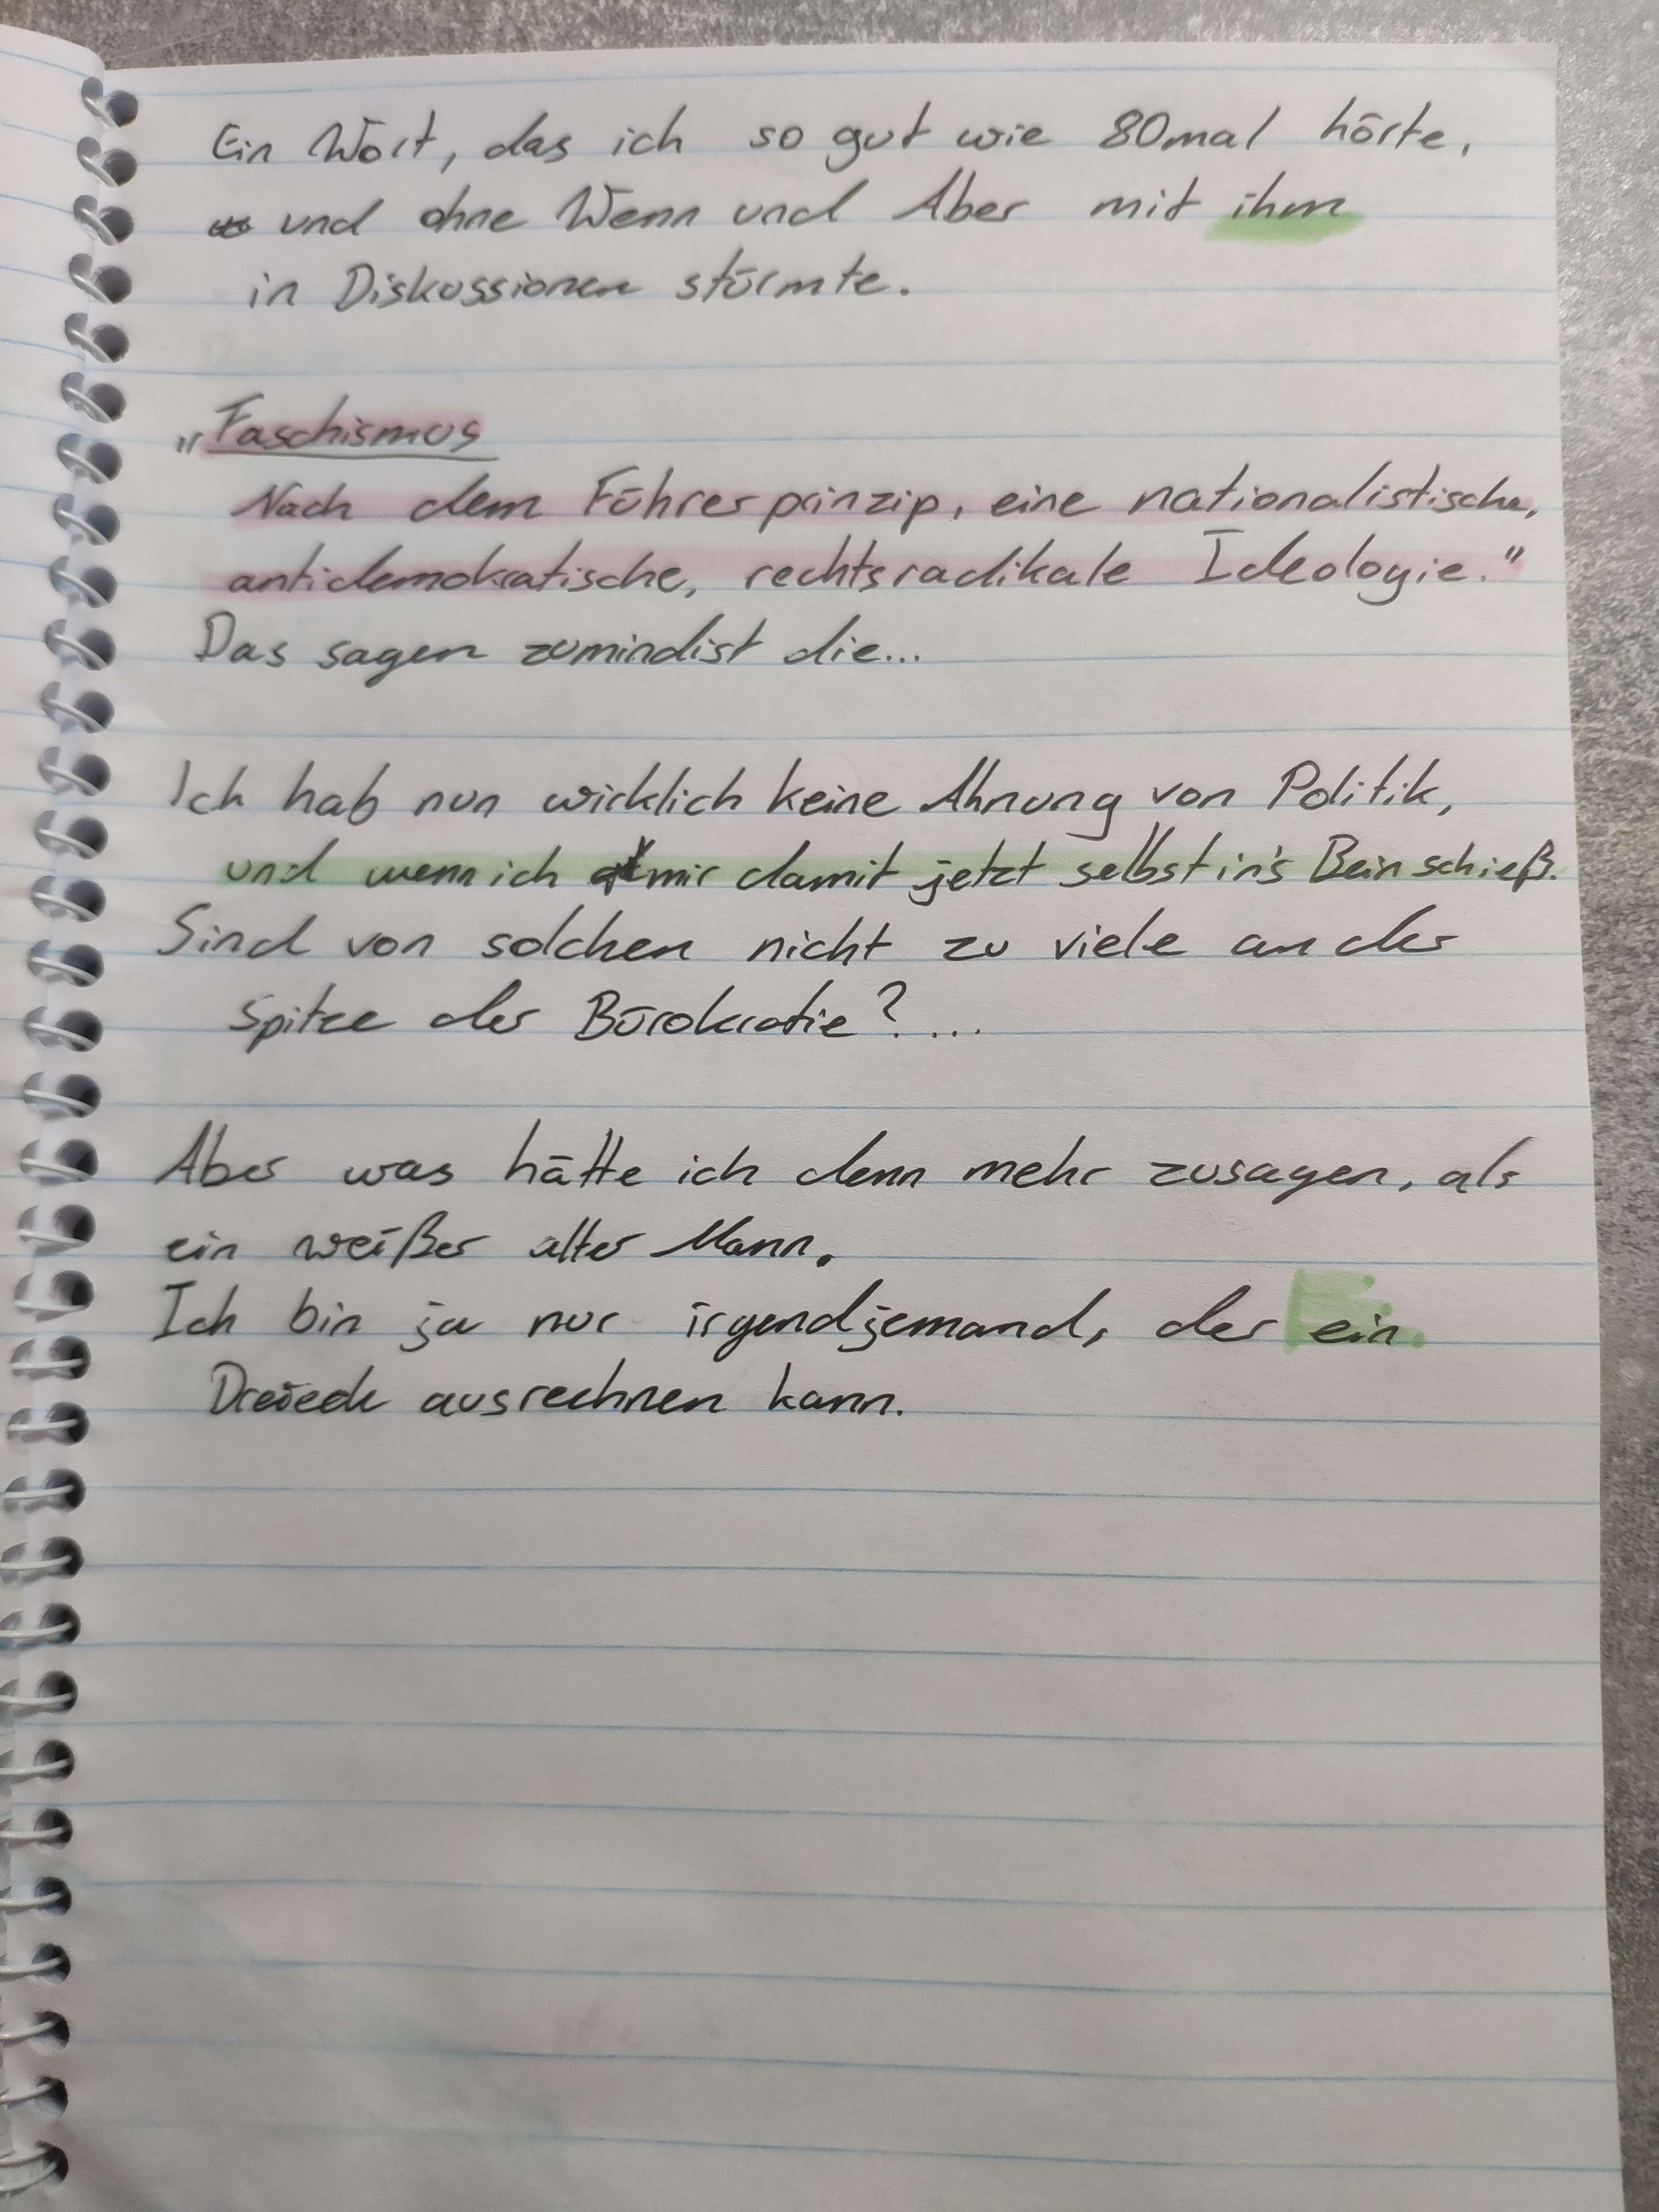 Ein Wort, das ich so gut wie 80mal hörte,
und ohne Wenn und Aber mit ihm
in Diskussionen stürmte.
„Faschismus
Nach dem Führerprinzip, eine nationalistische,
antidemokratische, rechtsradikale Ideologie."
Das sagen zumindist die...
Ich hab nun wirklich keine Ahnung von Politik,
und wenn ich mir damit jetzt selbst in's Bein schieß.
Sind von solchen nicht zu viele an der
Spitze der Bürokratie? ...
Aber was hätte ich denn mehr zusagen, als
ein weißer alter Mann.
Ich bin ja nur irgendjemand, der ein
Dreieck ausrechnen kann.